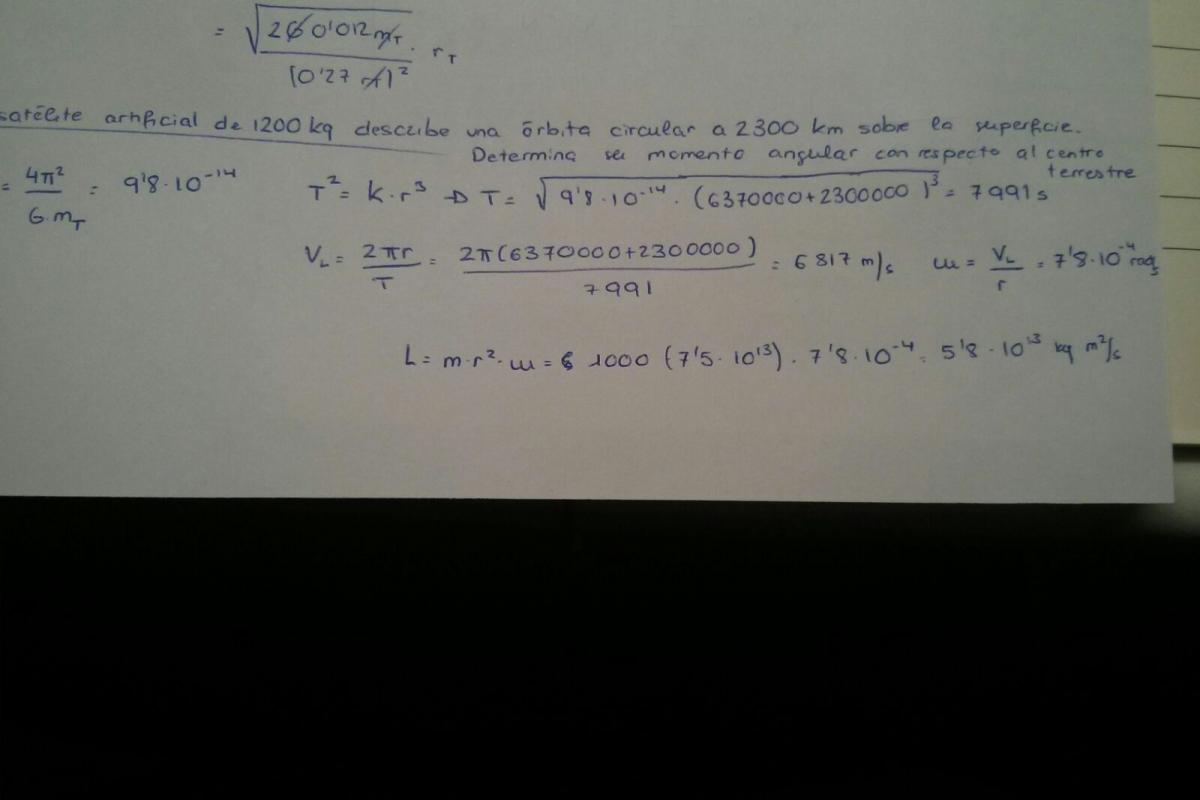 = √(2G 0'012 m_T / (0'27 r_T)²) · r_T
satélite artificial de 1200 kg describe una órbita circular a 2300 km sobre la superficie.
Determina su momento angular con respecto al centro
terrestre
= 4π² / G·m_T = 9'8·10⁻¹⁴ T² = k·r³ → T = √(9'8·10⁻¹⁴ · (6370000+2300000)³) = 7991 s
V_L = 2πr / T = 2π(6370000+2300000) / 7991 = 6817 m/s ω = V_L / r = 7'8·10⁻⁴ rad/s
L = m·r²·ω = 1000 (7'5·10¹³) · 7'8·10⁻⁴ = 5'8·10¹³ kg m²/s